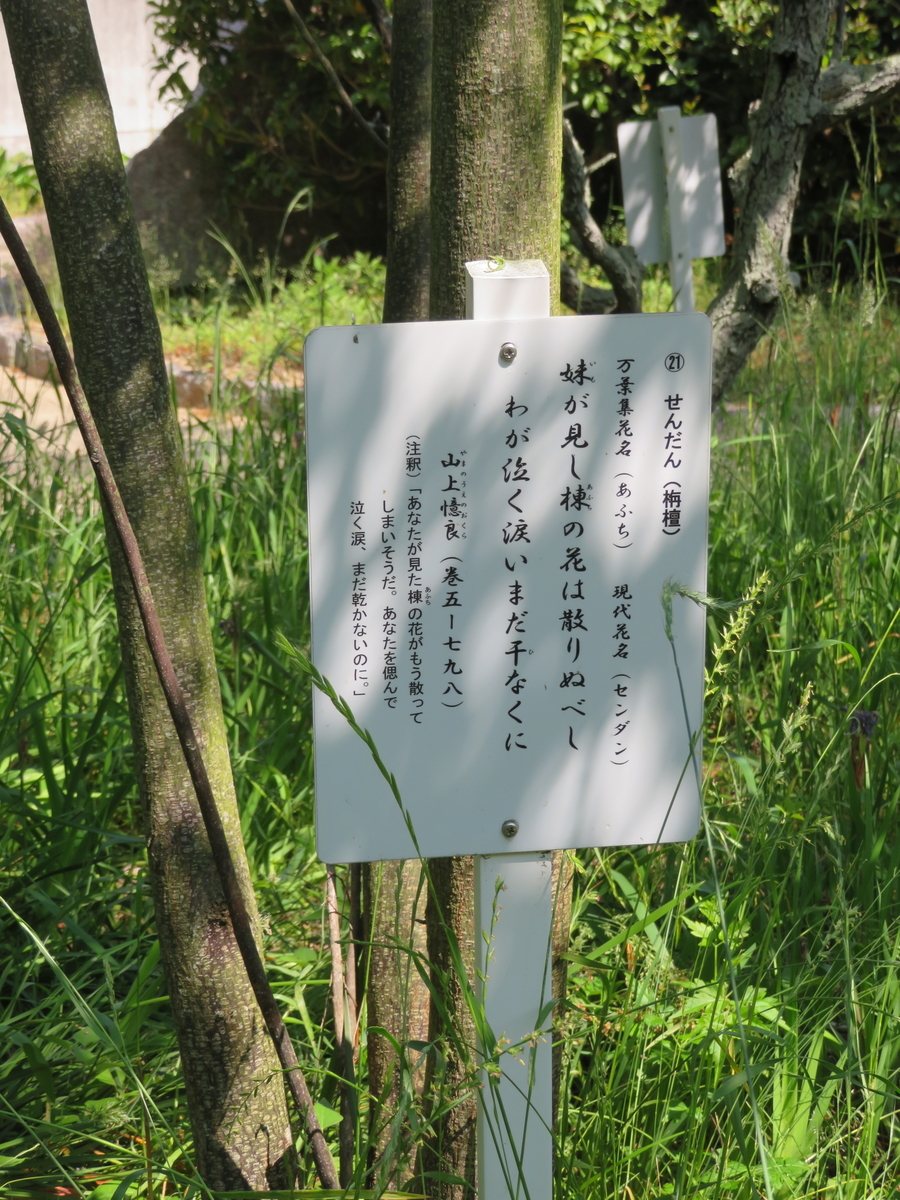 ㉑ せんだん(栴檀)
万葉集花名 (あふち) 現代花名 (センダン)
妹が見し楝の花は散りぬべし
わが泣く涙いまだ干なくに
山上憶良 (巻五ー七九八)
(注釈)「あなたが見た楝の花がもう散って
しまいそうだ。あなたを偲んで
泣く涙、まだ乾かないのに。」